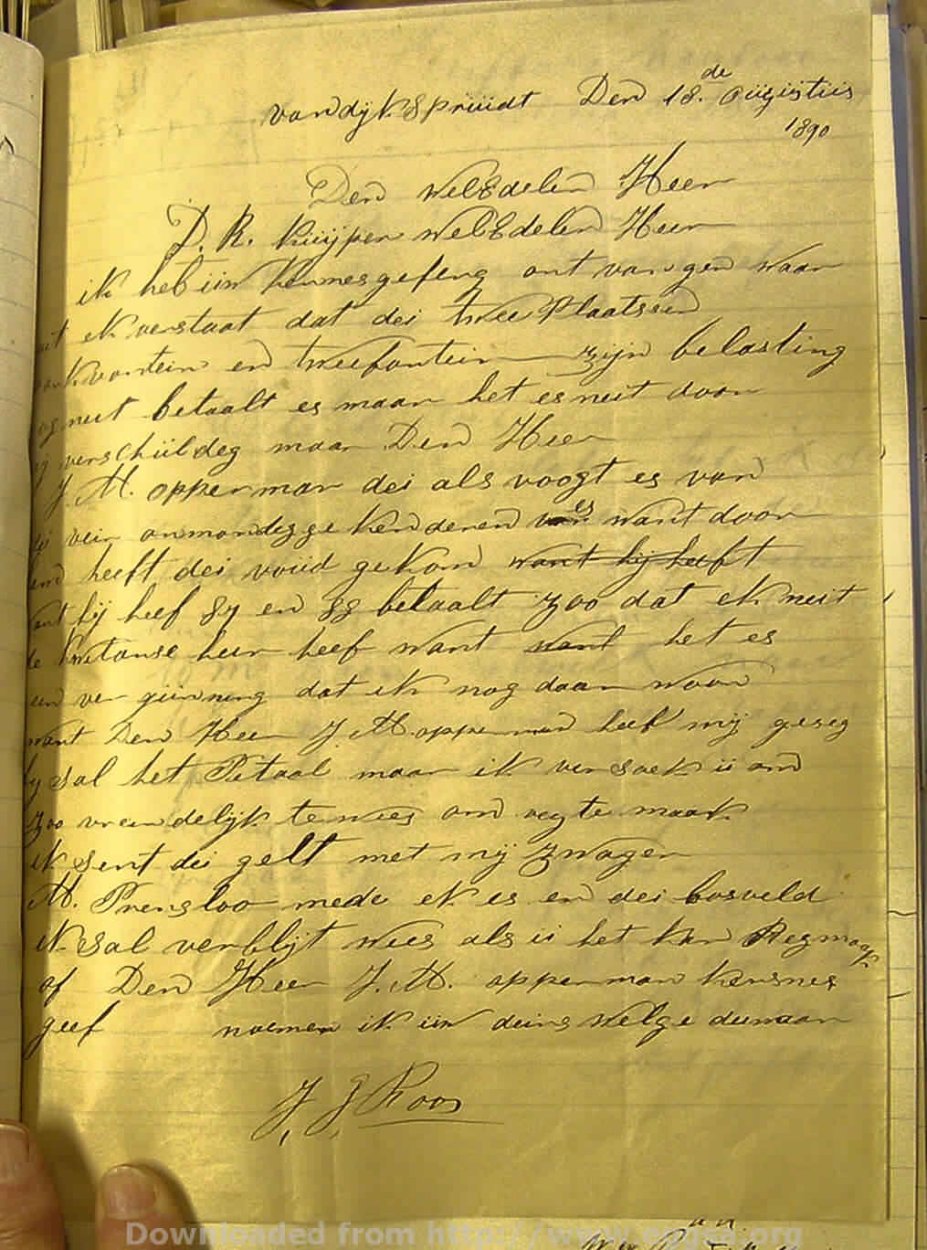 van dijk Sprüidt Den 18.de Oügüstüs
1890
Den WelEdelen Heer
D. R. Küijper WelEdelen Heer
ik heb üw kennesgefeng ont vangen waar
ut ek verstaat dat dei twee Plaatssen
en tweefontein zijn belasting
neit betaalt es maar het es neit door
verschüldeg maar Den Heer
J. M. opperman dei als voogt es van
dei veir onmondegge kenderen es want door
hem heeft dei voüd gekom want hij heeft
want hij heef 87 en 88 betaalt zoo dat ek neit
de kwetanse heir heef want want het es
een ver günneng dat ik nog daar woon
want Den Heer J. M. opperman heef mij geseg
hy sal het Betaal maar ik ver soek ü om
zoo vreindelijk te wees om regte maak
ek sent dei gelt met mij zwager
M. Prensloo mede ek es en dei bosveld
ek sal verblijt wees als ü het kan Regmaak
of Den Heer J. M. opperman kensnes
geef noemen ik üw deins welge deenaar
J. J. Roos
Downloaded from http://www.eggsa.org